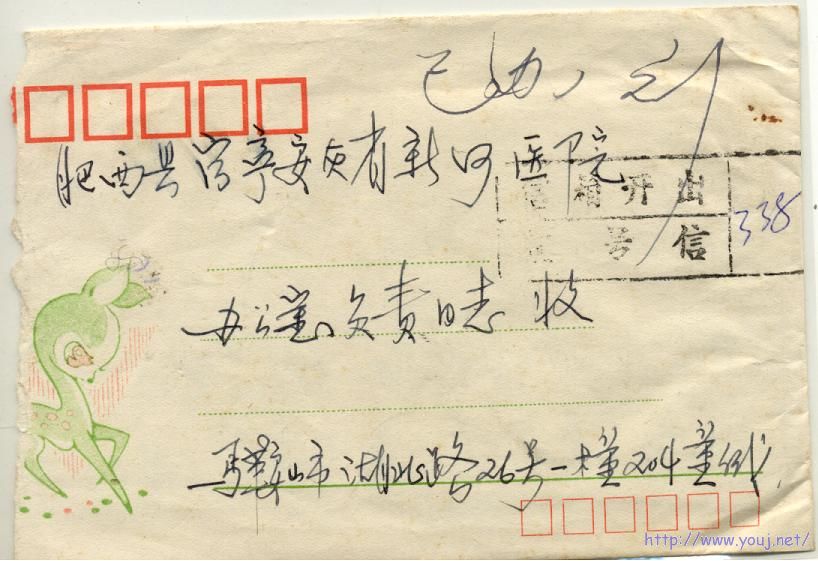 已办
肥西县官亭安徽省新河医院
信箱开出
号信
338
办公室负责同志 收
马鞍山市湖北路26号一栋204董
http://www.youj.net/